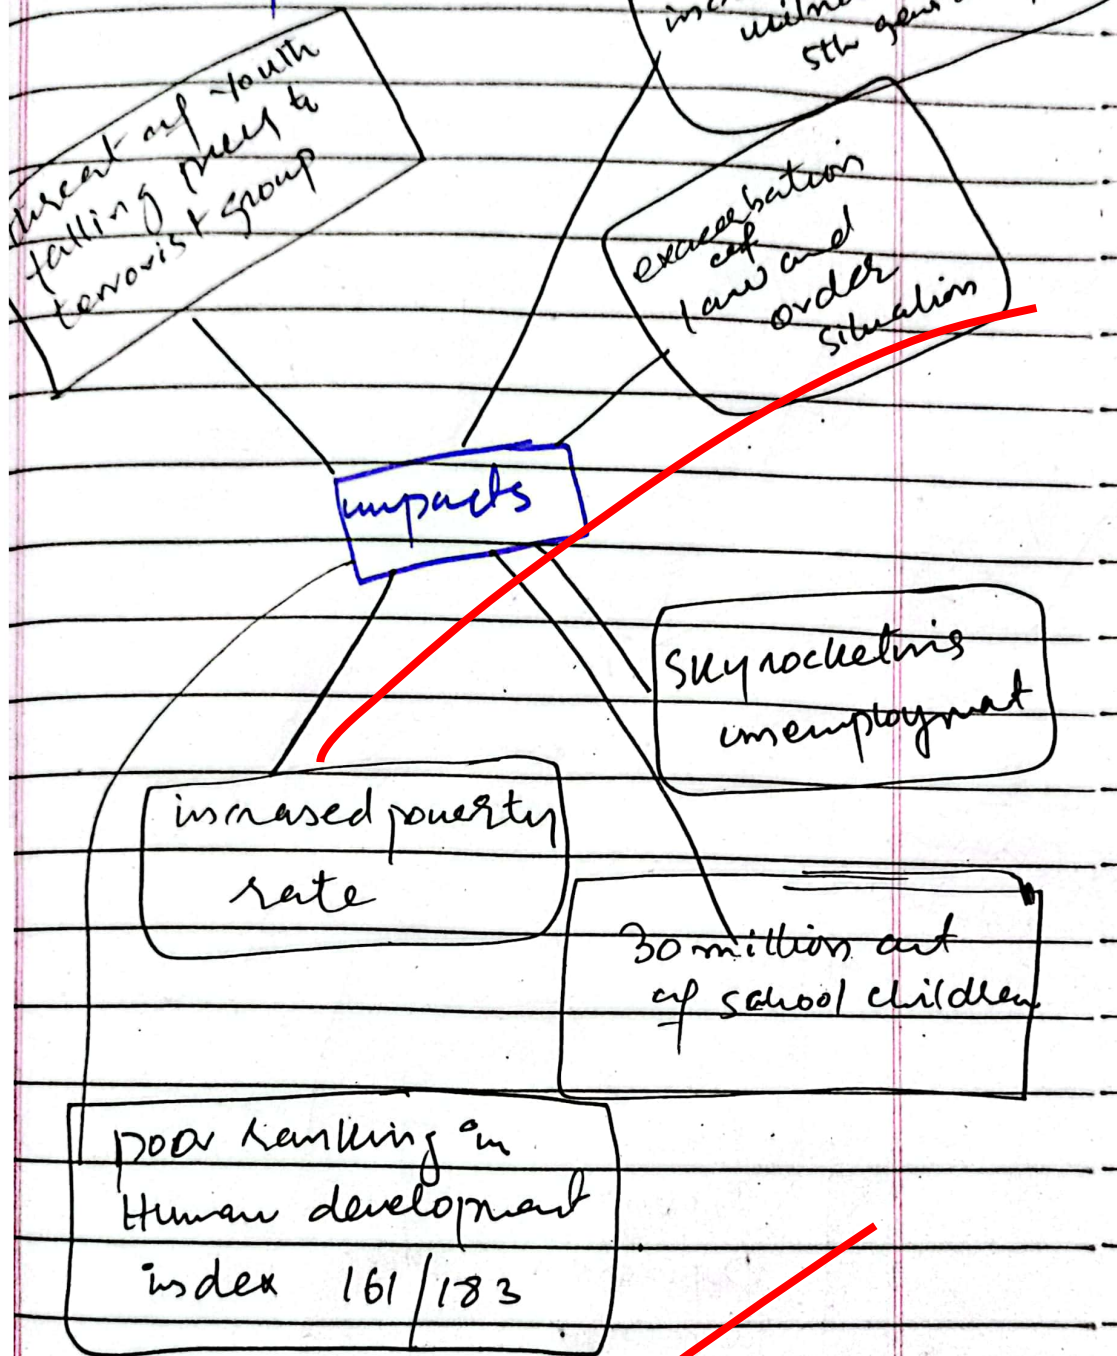 5th
threat of youth
falling prey to
terrorist group
exacerbation
of
law and
order
situation
impacts
Skyrocketing
unemployment
increased poverty
rate
30 million out
of school children
poor ranking in
Human development
index 161/183